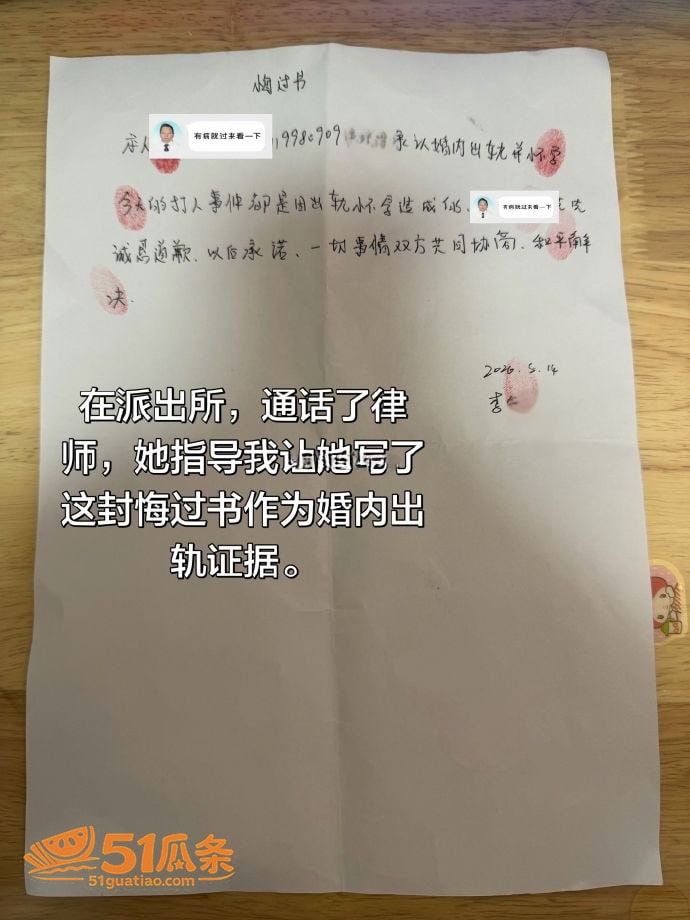 悔过书
本人 有病就过来看一下 9980909 承认婚内出轨并怀孕
今天的打人事件都是因出轨怀孕造成的、 有病就过来看一下
诚恳道歉、以后承诺、一切事情双方共同协商、和平解
决.
2026.5.14
李
在派出所，通话了律
师，她指导我让她写了
这封悔过书作为婚内出
轨证据。
51瓜条
51guatiao.com